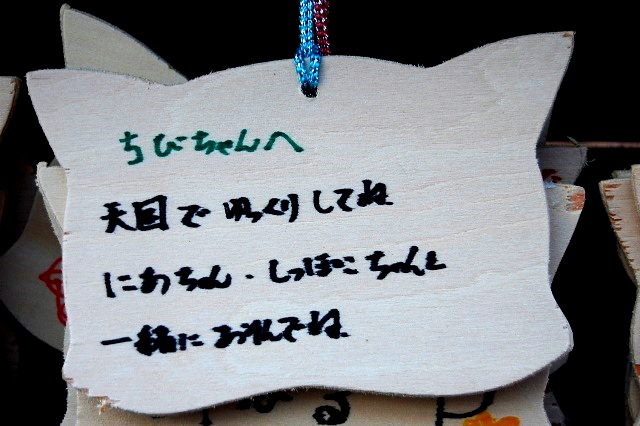 ちびちゃんへ
天国でゆっくりしてね
にあちゃん・しっぽこちゃんと
一緒にあそんでね